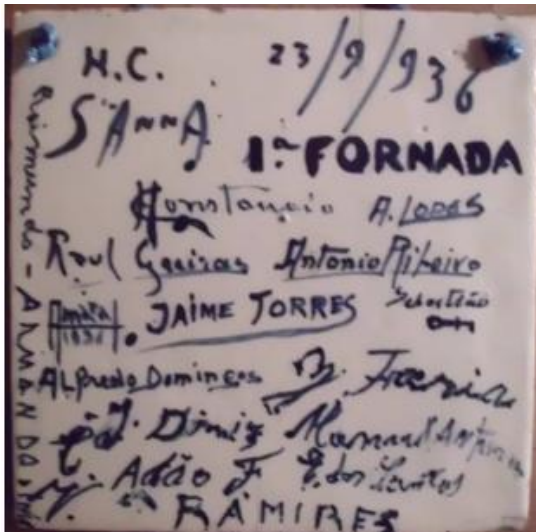 H.C. 23/9/936
S.ANNA
1.ª FORNADA
Constancio A. LOPES
Raul Gueiras Antonio Ribeiro
Amaral 1936 JAIME TORRES Sebastião
ALfredo Domingos Faria
J. Diniz Manuel Antonio
Adão F. F. dos Santos
RAMIRES
Raimundo - ARMANDO